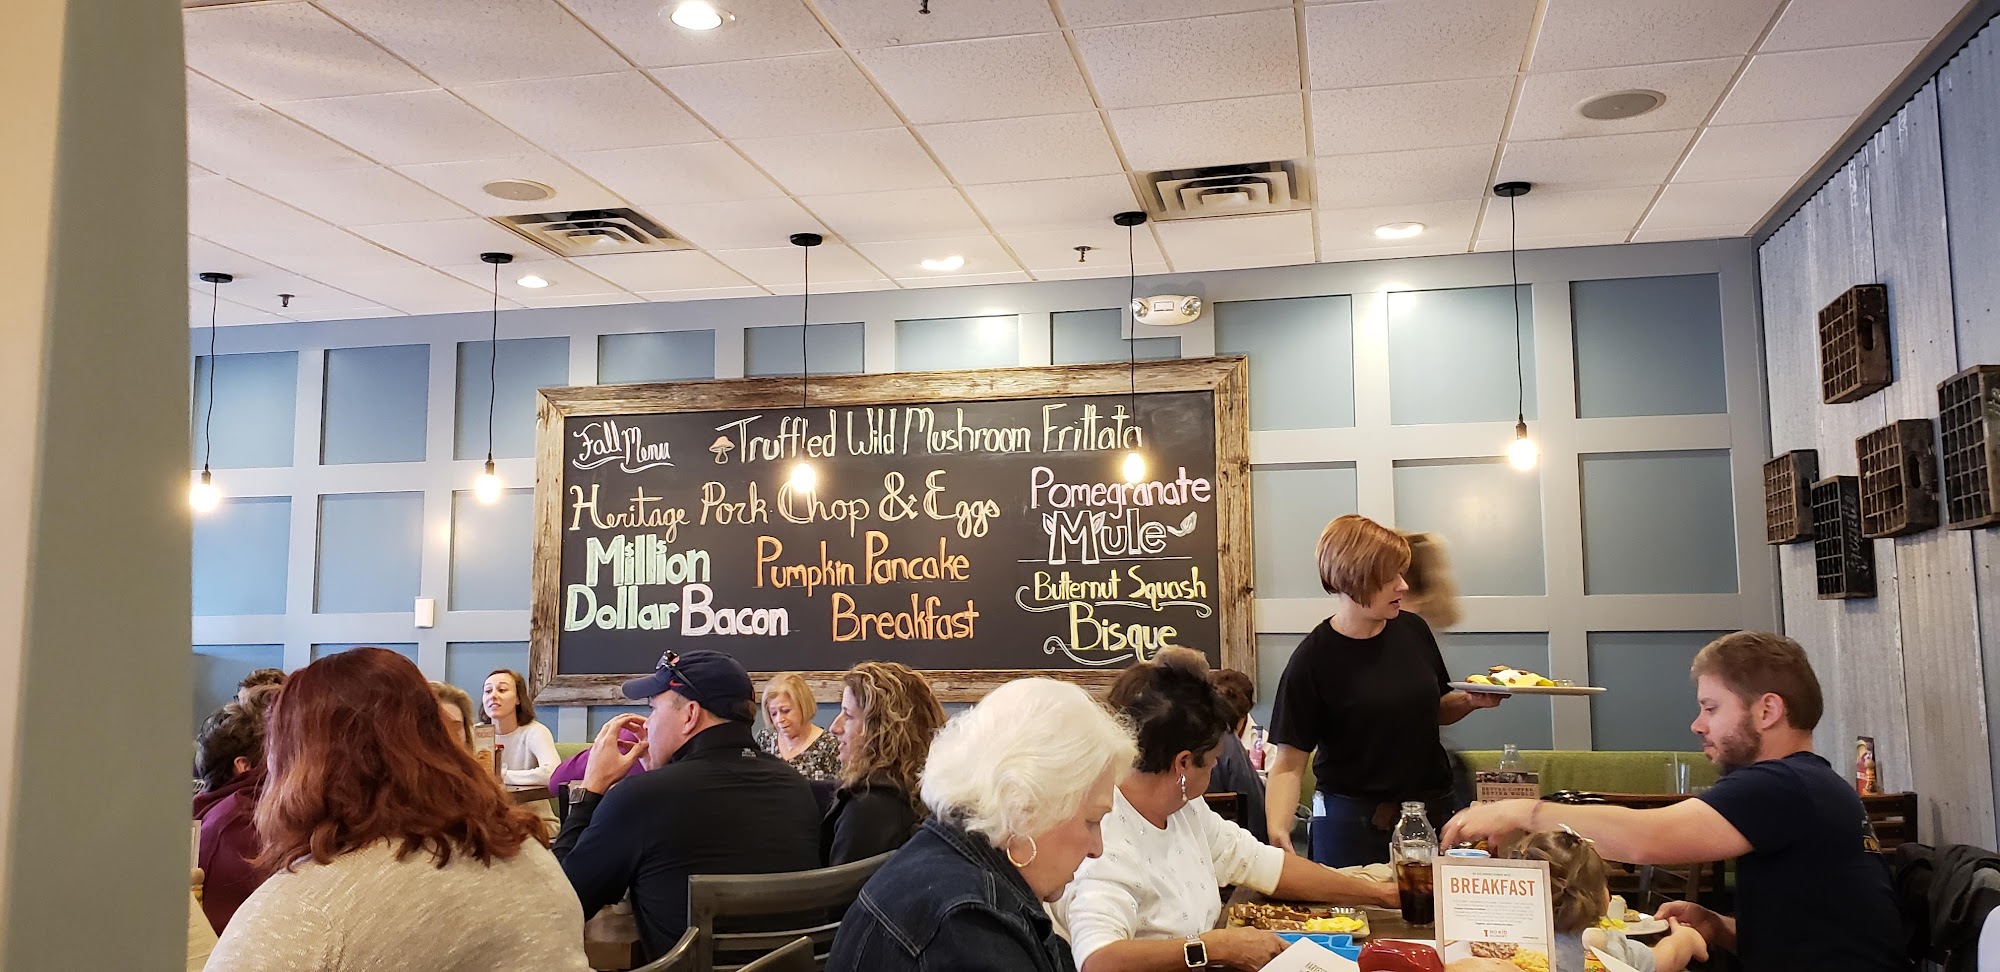 Fall Menu
Truffled Wild Mushroom Frittata
Heritage Pork Chop & Eggs
Pomegranate
Mule
Million
Dollar Bacon
Pumpkin Pancake
Breakfast
Butternut Squash
Bisque
BETTER COFFEE
BETTER WORLD
BREAKFAST